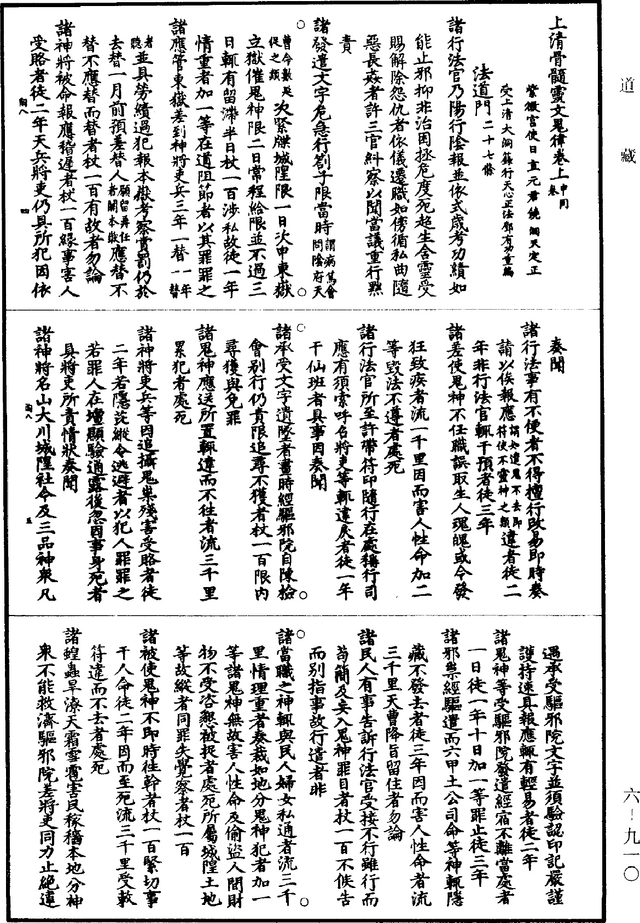 道藏
上清骨髓靈文鬼律卷上 中同卷
紫微官使日直元君饒洞天定正
受上清大洞籙行天心正法鄧有功重編
法道門二十七條
諸行法官乃陽行陰報並依式歲考功績如
能止邪抑非治困拯危度死超生含靈受
賜解除怨仇者依儀遷職如傍循私曲隨
惡長姦者許三官糾察以聞當議重行黜
責
諸發遣文字危急行剳子限當時 謂病篤會問陰府天
曹令數足促之類 次緊牒城隍限一日次申東嶽
立獄催鬼神限二日常程給限並不過三
日輒有留滯半日杖一百涉私故徒一年
情重者加一等在道阻節者以其罪罪之
諸應管東嶽差到神將吏兵三年一替 一年一替
者聽 並具勞績過犯報本嶽考察賞罰仍於
去替一月前預差替人 願留再任者關本嶽 應替不
替不應替而替者杖一百有故者勿論
諸神將被命報應稽遲者杖一百緣事害人
受賂者徒二年天兵將吏仍具所犯因依
奏聞
諸行法事有不便者不得擅行改易即時奏
請以俟報應 謂如遣鬼不去即符使不靈神之類 違者徒二
年非行法官輒干預者徒三年
諸差使鬼神不任職誤取生人魂魄或令發
狂致疾者流一千里因而害人性命加二
等毀法不遵者處死
諸行法官所至許帶符印隨行在處稱行司
應有須索呼名將吏等輒違戾者徒一年
干仙班者具事因奏聞
諸承受文字遺墜者晝時經驅邪院自陳檢
會別行仍責限追尋不獲者杖一百限內
尋獲與免罪
諸鬼神應送所置輒違而不往者流三千里
累犯者處死
諸神將吏兵等因追攝鬼祟殘害受賂者徒
二年若隱蓯縱令逃避者以犯人罪罪之
若罪人在壇顯驗通露後忽因事身死者
具將吏所責情狀奏聞
諸神將名山大川城隍社令及三品神衆凡
遇承受驅邪院文字並須驗認印記嚴謹
護持速具報應輒有輕易者徒二年
諸鬼神等受驅邪院發遣經宿不離當處者
一日徒一年十日加一等罪止徒三年
諸邪祟經驅遣而六甲土公司命等神輒隱
藏不發去者徒三年因而害人性命者流
三千里天曹降旨留住者勿論
諸民人有事告訴行法官受接不行雖行而
苟簡及妄入鬼神罪目者杖一百不俟告
而別指事故行遣者非
諸當職之神輒與民人婦女私通者流三千
里情理重者奏裁如地分鬼神犯者加一
等諸鬼神無故害人性命及偷盜人間財
物不受咨懇被捉者處死所屬城隍土地
等故縱者同罪失覺察者杖一百
諸被使鬼神不即時往幹者杖一百緊切事
干人命徒二年因而至死流三千里受敕
符違而不去者處死
諸蝗蟲旱潦天霜雪雹害民稼穡本地分神
衆不能救濟驅邪院差將吏同力止絶違
六-九一〇